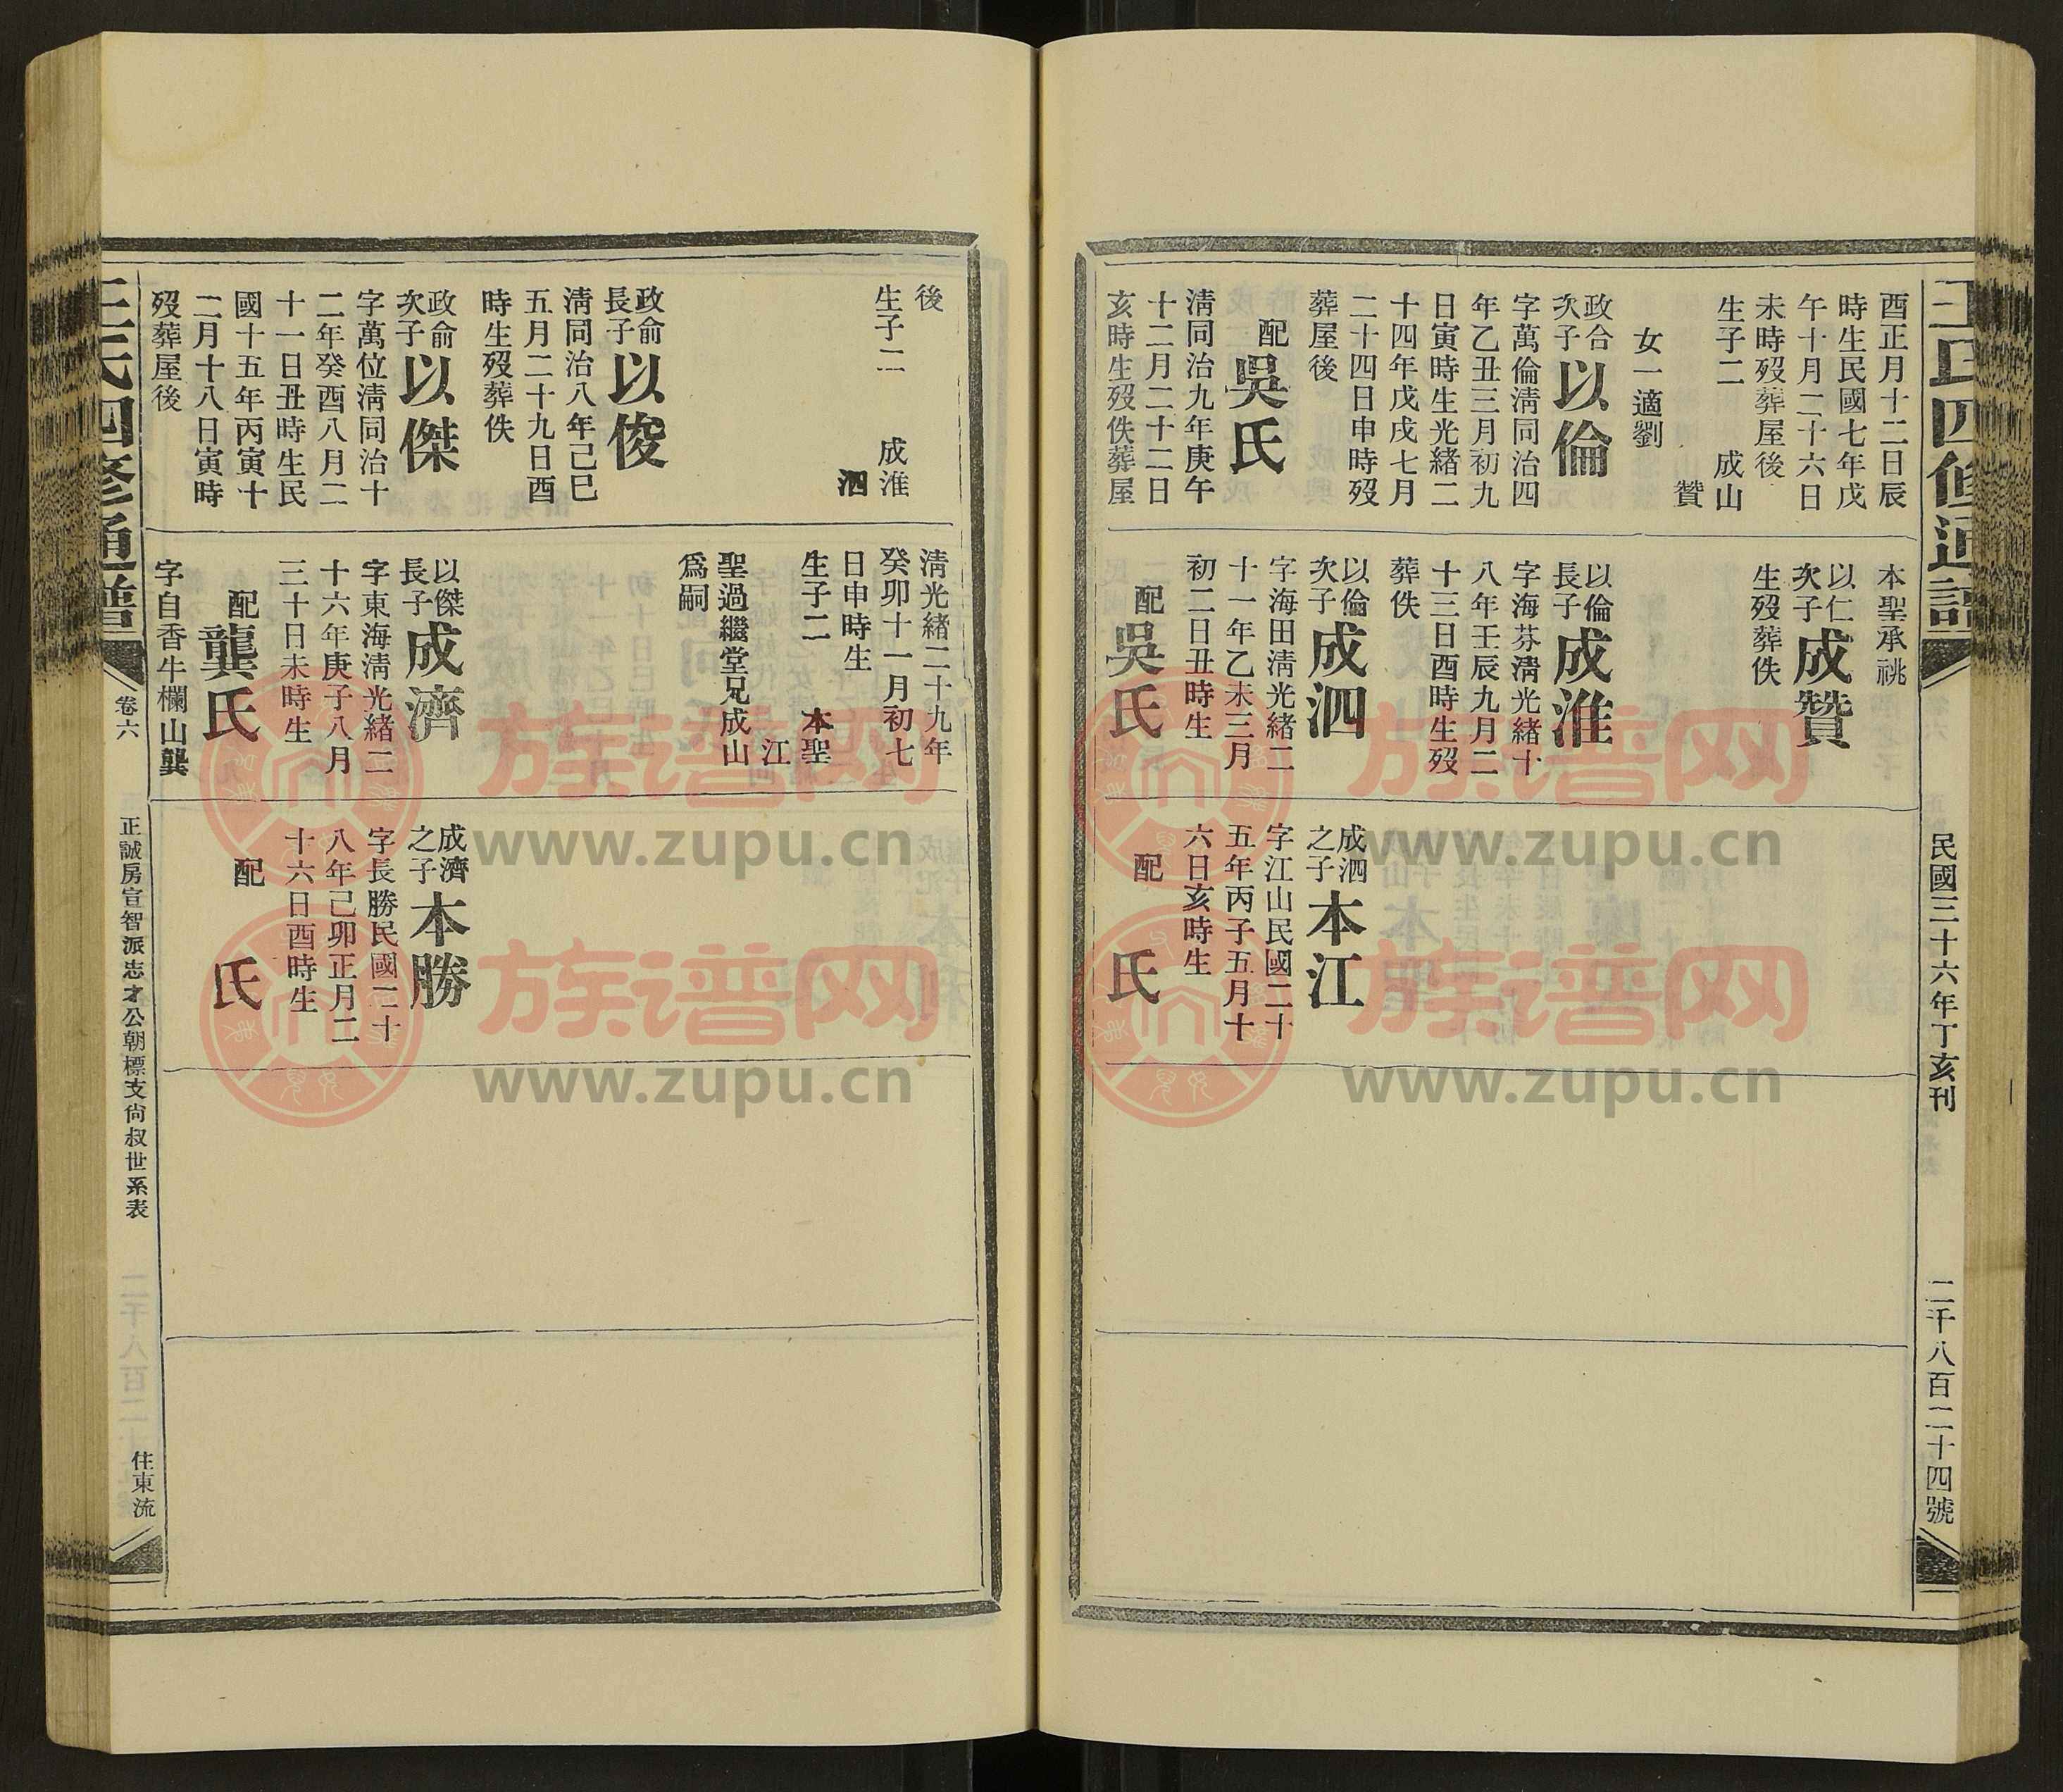 王氏四修通譜
民國三十六年丁亥刊
二千八百二十四號
酉正月十二日辰
時生民國七年戊
午十月二十六日
未時歿葬屋後
生子二 成山
贊
女一適劉
政合次子以倫
字萬倫淸同治四
年乙丑三月初九
日寅時生光緒二
十四年戊戌七月
二十四日申時歿
葬屋後
配吳氏
淸同治九年庚午
十二月二十二日
亥時生歿佚葬屋
本聖承祧
以仁次子成贊
生歿葬佚
以倫長子成淮
字海芬淸光緒十
八年壬辰九月二
十三日酉時生歿
葬佚
以倫次子成泗
字海田淸光緒二
十一年乙未三月
初二日丑時生
配吳氏
成泗之子本江
字江山民國二十
五年丙子五月十
六日亥時生
配 氏
後
生子二 成淮
泗
政俞長子以俊
淸同治八年己巳
五月二十九日酉
時生歿葬佚
政俞次子以傑
字萬位淸同治十
二年癸酉八月二
十一日丑時生民
國十五年丙寅十
二月十八日寅時
歿葬屋後
淸光緒二十九年
癸卯十一月初七
日申時生
生子二 本聖
江
聖過繼堂兄成山
爲嗣
以傑長子成濟
字東海淸光緒二
十六年庚子八月
三十日未時生
配龔氏
字自香牛欄山龔
成濟之子本勝
字長勝民國二十
八年己卯正月二
十六日酉時生
配 氏
王氏四修通譜
卷六
正誠房宣智派忠才公朝標支尙叔世系表
住東流
族谱网
www.zupu.cn
族谱网
www.zupu.cn
族谱网
www.zupu.cn
族谱网
www.zupu.cn